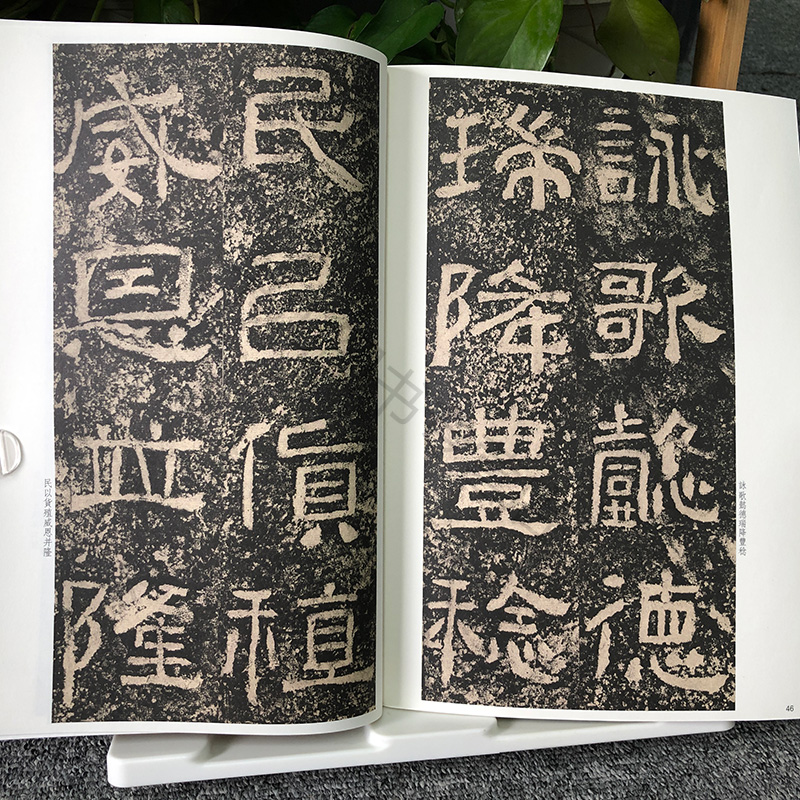 詠歌懿德瑞降豐稔
詠歌懿德
瑞降豐稔
46
民㠯貨稙
威恩並隆
民以貨殖威恩并隆
书